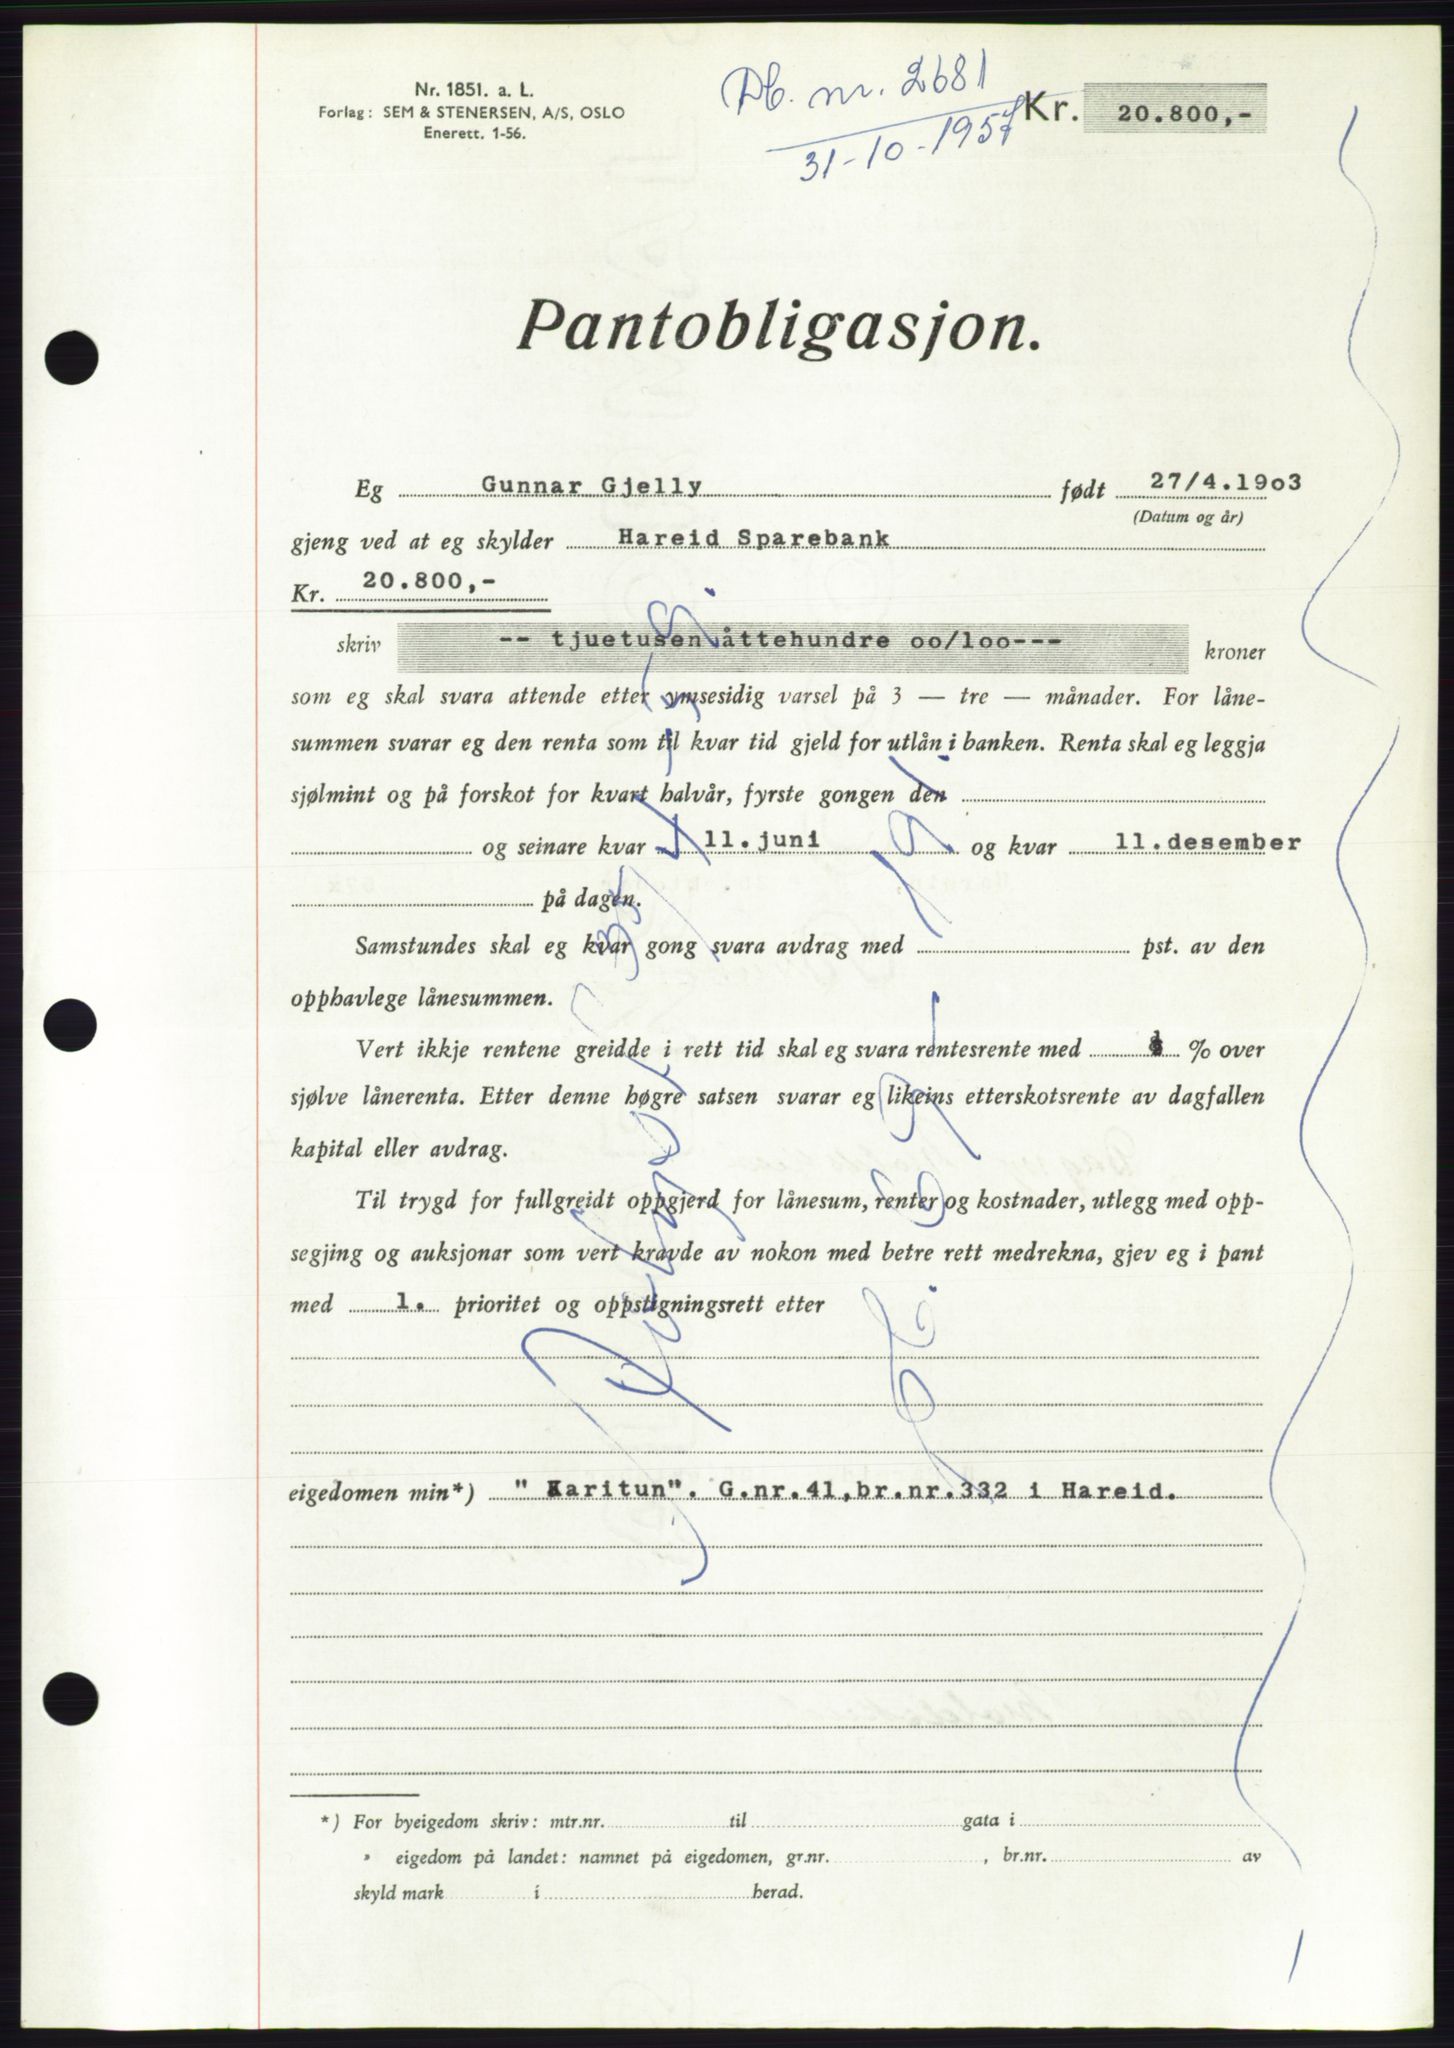 Nr. 1851. a. L.
Forlag: SEM & STENERSEN, A/S, OSLO
Enerett. 1-56.
Db. nr. 2681
31-10-1957
Kr. 20.800,-
Pantobligasjon.
Eg Gunnar Gjelly født 27/4.19o3
(Datum og år)
gjeng ved at eg skylder Hareid Sparebank
Kr. 20.800,-
skriv -- tjuetusen åttehundre oo/loo--- kroner
som eg skal svara attende etter ymsesidig varsel på 3 — tre — månader. For låne-
summen svarar eg den renta som til kvar tid gjeld for utlån i banken. Renta skal eg leggja
sjølmint og på forskot for kvart halvår, fyrste gongen den
og seinare kvar 11.juni og kvar 11.desember
på dagen.
Samstundes skal eg kvar gong svara avdrag med pst. av den
opphavlege lånesummen.
Vert ikkje rentene greidde i rett tid skal eg svara rentesrente med % over
sjølve lånerenta. Etter denne høgre satsen svarar eg likeins etterskotsrente av dagfallen
kapital eller avdrag.
Til trygd for fullgreidt oppgjerd for lånesum, renter og kostnader, utlegg med opp-
segjing og auksjonar som vert kravde av nokon med betre rett medrekna, gjev eg i pant
med 1. prioritet og oppstigningsrett etter
eigedomen min*) " Karitun". G.nr.41,br.nr.332 i Hareid.
*) For byeigedom skriv: mtr.nr. til gata i
" eigedom på landet: namnet på eigedomen, gr.nr. , br.nr. av
skyld mark i herad.